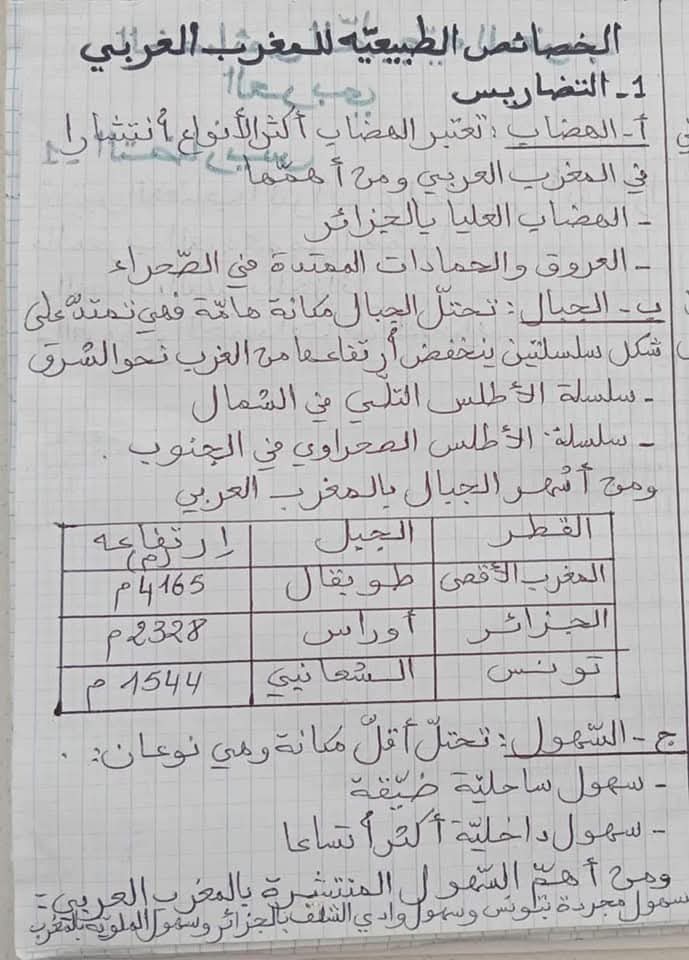 الخصائص الطبيعيّة للمغرب العربي
1 - التضاريس
أ - الهضاب : تعتبر الهضاب أكثر الأنواع أنتشارا
في المغرب العربي ومن أهمّها
- الهضاب العليا بالجزائر
- العروق والحمادات الممتدة في الصّحراء
ب - الجبال : تحتلّ الجبال مكانة هامّة فهي تمتدّ على
شكل سلسلتين ينخفض أرتفاعها من الغرب نحو الشرق
- سلسلة الأطلس التلّي في الشمال
- سلسلة الأطلس الصحراوي في الجنوب .
ومن أشهر الجبال بالمغرب العربي
القطر الجبل إرتفاعه (م)
المغرب الأقصى طوبقال 4165 م
الجزائر أوراس 2328 م
تونس الشعانبي 1544 م
ج - السّهول : تحتلّ أقلّ مكانة وهي نوعان : .
- سهول ساحليّة ضيّقة
- سهول داخليّة أكثر أتساعا
ومن أهمّ السّهول المنتشرة بالمغرب العربي :
سهول مجردة بتونس وسهول وادي الشلف بالجزائر وسهول الملوية بالمغرب